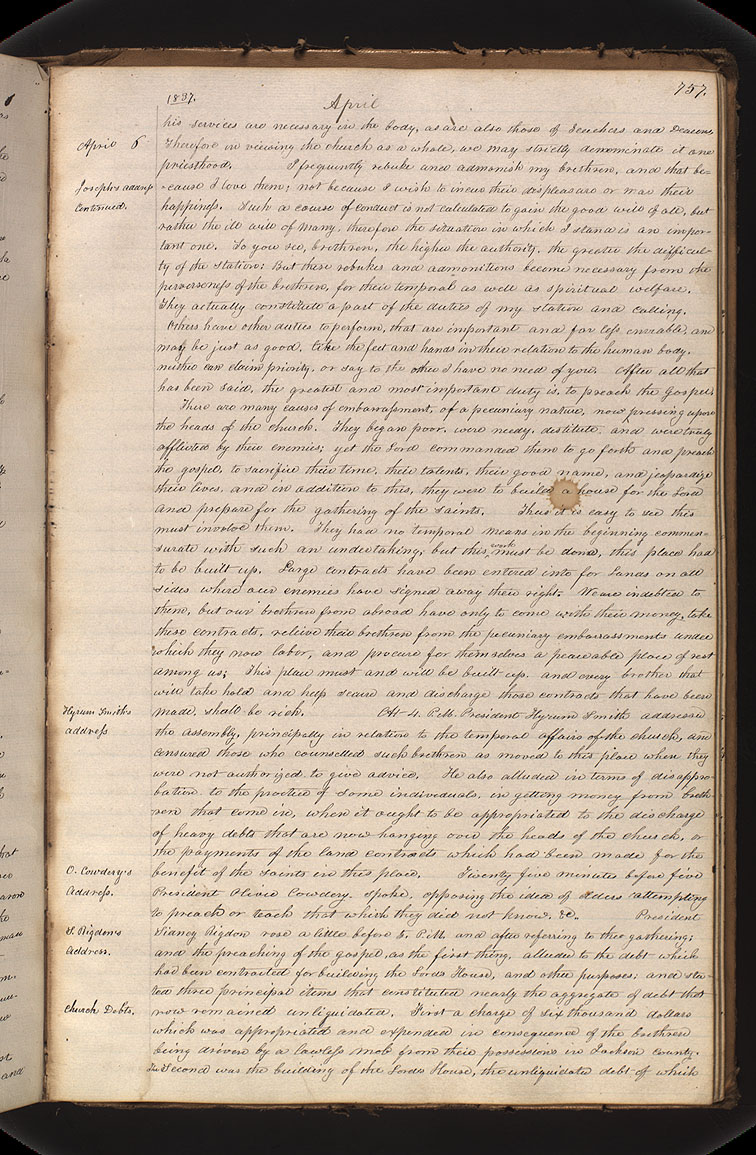 1837.
April
757.
his services are necessary in the body, as are also those of Teachers and Deacons
April 6
Therefore in viewing the church as a whole, we may strictly denominate it one
priesthood. I frequently rebuke and admonish my brethren, and that be-
Joseph's address
-cause I love them; not because I wish to incur their displeasure or mar their
Continued.
happiness. Such a course of conduct is not calculated to gain the good will of all, but
rather the ill will of many, therefore the situation in which I stand is an impor-
tant one. So you see, brethren, the higher the authority, the greater the difficul-
ty of the station: But these rebukes and admonitions become necessary from the
perverseness of the brethren, for their temporal as well as spiritual welfare.
They actually constitute a part of the duties of my station and calling.
Others have other duties to perform, that are important and far less enviable, and
may be just as good, like the feet and hands in their relation to the human body.
neither can claim priority, or say to the other I have no need of you. After all that
has been said, the greatest and most important duty is, to preach the Gospel.
There are many causes of embarrassment, of a pecuniary nature, now pressing upon
the heads of the church. They began poor, were needy, destitute, and were truly
afflicted by their enemies; yet the Lord commanded them to go forth and preach
the gospel, to sacrifice their time, their talents, their good name, and jeopardize
their lives, and in addition to this, they were to build a house for the Lord
and prepare for the gathering of the saints. Thus it is easy to see this
must involve them. They had no temporal means in the beginning commen-
surate with such an undertaking, but this work must be done, this place had
to be built up. Large contracts have been entered into for Lands on all
sides where our enemies have signed away their right. We are indebted to
them, but our brethren from abroad have only to come with their money, take
these contracts, relieve their brethren from the pecuniary embarrassments under
which they now labor, and procure for themselves a peaceable place of rest
among us; This place must and will be built up. and every brother that
will take hold and help secure and discharge those contracts that have been
Hyrum Smith's
made, shall be rich. At 4. P.M. President Hyrum Smith addressed
address
the assembly, principally in relation to the temporal affairs of the church, and
censured those who counselled such brethren as moved to this place when they
were not authorized to give advice. He also alluded in terms of disappro-
bation to the practice of some individuals, in getting money from breth-
ren that come in, when it ought to be appropriated to the discharge
of heavy debts that are now hanging over the heads of the church, or
the payments of the land contracts which had been made for the
O. Cowdery's
benefit of the saints in this place. Twenty five minutes before five
Address.
President Oliver Cowdery spoke, opposing the idea of elders attempting
to preach or teach that which they did not know. &c. President
S. Rigdon's
Sidney Rigdon rose a little before 5. P.M. and after referring to the gathering;
Address.
and the preaching of the gospel, as the first thing, alluded to the debt which
had been contracted for building the Lord's House, and other purposes; and sta-
ted three principal items that constituted nearly the aggregate of debt that
Church Debts.
now remained unliquidated. First a charge of six thousand dollars
which was appropriated and expended in consequence of the brethren
being driven by a lawless mob from their possessions in Jackson County.
The Second was the building of the Lords House, the unliquidated debt of which